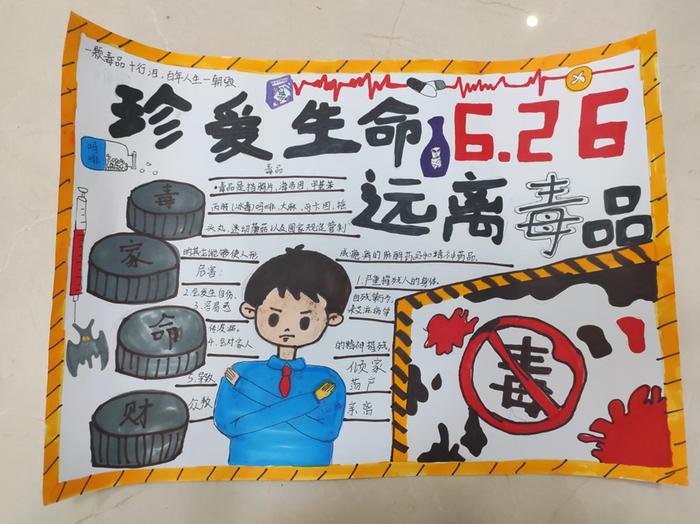 一颗毒品十行泪,百年人生一朝毁
珍爱生命 6.26
远离毒品
吗啡
毒品
毒品是指鸦片、海洛因、甲基苯
丙胺(冰毒)吗啡、大麻、可卡因、摇
头丸、迷幻蘑菇以及国家规定管制
的其它能够使人形
成瘾癖的麻醉药品和精神药品。
危害:
1.严重摧残人的身体。
2.会发生自伤、
自残等行为
3.容易感
4.会对家人
的精神摧残。
5.导致
倾家
荡产
众叛
亲离
毒
家
命
财
毒